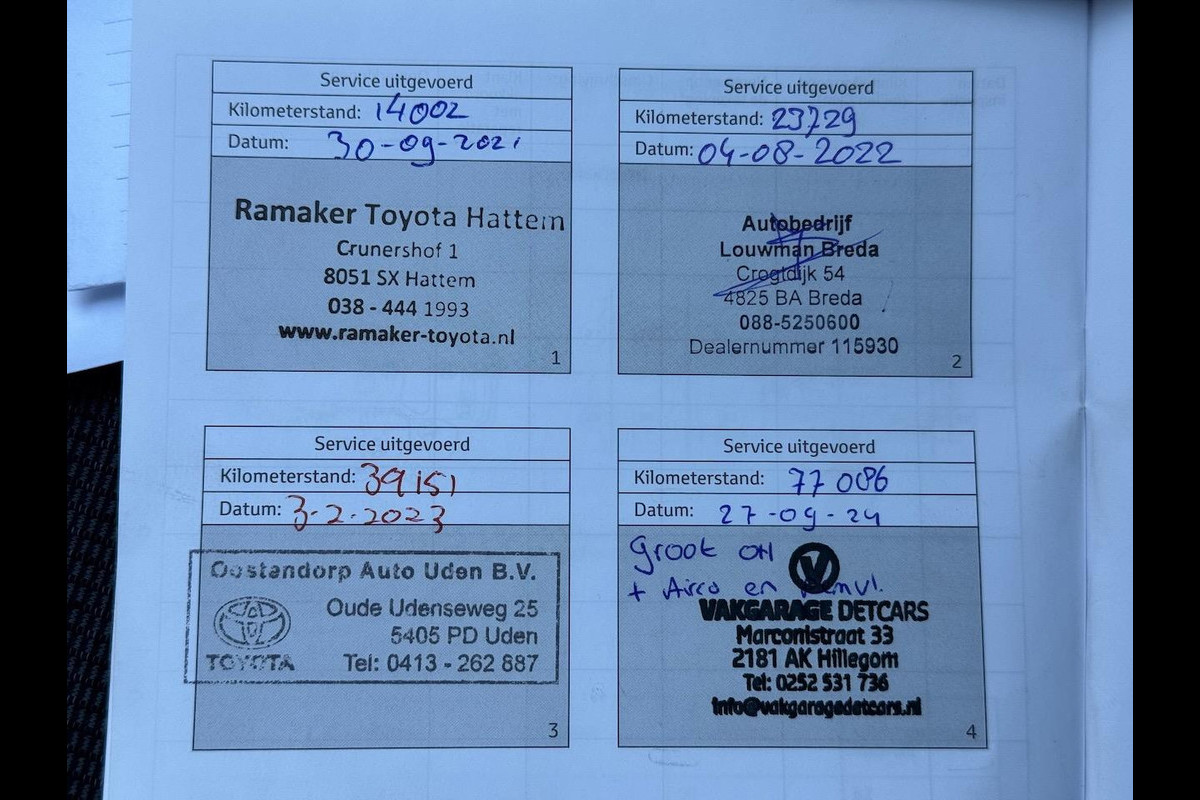 Service uitgevoerd
Kilometerstand: 14002
Datum: 30-09-2021
Ramaker Toyota Hattem
Crunershof 1
8051 SX Hattem
038 - 444 1993
www.ramaker-toyota.nl
1
Service uitgevoerd
Kilometerstand: 23729
Datum: 04-08-2022
Autobedrijf
Louwman Breda
Crogtdijk 54
4825 BA Breda
088-5250600
Dealernummer 115930
2
Service uitgevoerd
Kilometerstand: 39151
Datum: 3-2-2023
Oostandorp Auto Uden B.V.
Oude Udenseweg 25
5405 PD Uden
TOYOTA Tel: 0413 - 262 887
3
Service uitgevoerd
Kilometerstand: 77086
Datum: 27-09-24
Groot OH
+ Airco en
VAKGARAGE DETCARS
Marconistraat 33
2181 AK Hillegom
Tel: 0252 531 736
info@vakgaragedetcars.nl
4